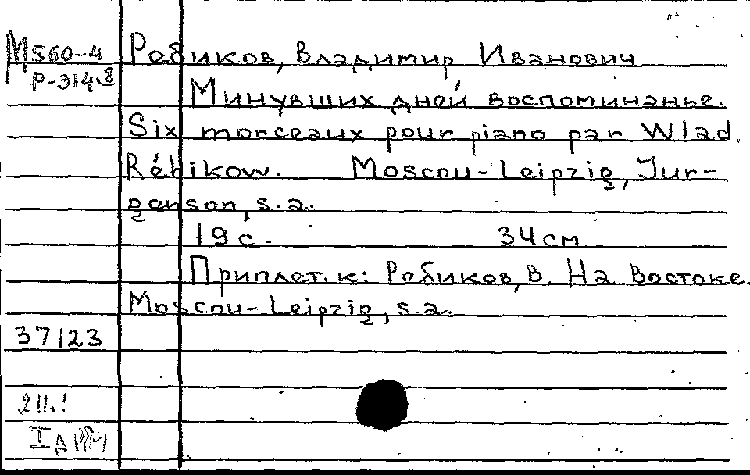 М560-4 Ребиков, Владимир Иванович
Р-314.8
Минувших дней воспоминанье.
Six morceaux pour piano par Wlad.
Rébikow. Moscou-Leipzig, Jur-
genson, s.a.
19 с. 34 см
Приплет. к: Ребиков, В. На Востоке.
Moscou-Leipzig, s.a.
37123